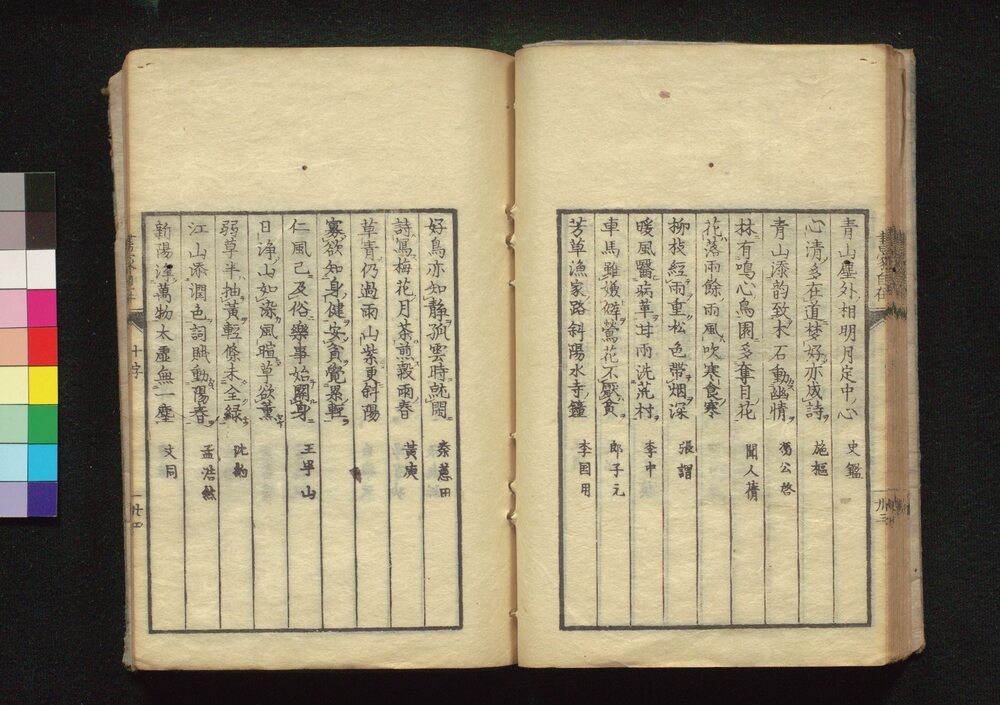 青山塵外相明月定中心 史鑑
心清多在道梦好亦成詩 施樞
青山添韵致木石動幽情 馮公啓
林有鳴心鳥園多奪目花 聞人倩
花落雨餘雨風吹寒食寒
柳枝經雨重松色帶烟深 張謂
暖風醫病草甘雨洗荒村 李中
車馬雖嫌僻鶯花不厭貧 郎子元
芳草漁家路斜陽水寺鐘 李国用
好鳥亦知靜孤雲時就閑 秦慧田
詩寫梅花月茶煎穀雨春 黃庚
草青仍過雨山紫更斜陽
寡欲知身健安貧覺累輕
仁風已及俗樂事始關身 王半山
日净山如染風暄草欲薰
弱草半抽黃輕條未全綠 沈約
江山添潤色詞賦動陽春 孟浩然
新陽浮萬物太虛無一塵 文同
十字
廿三
廿四